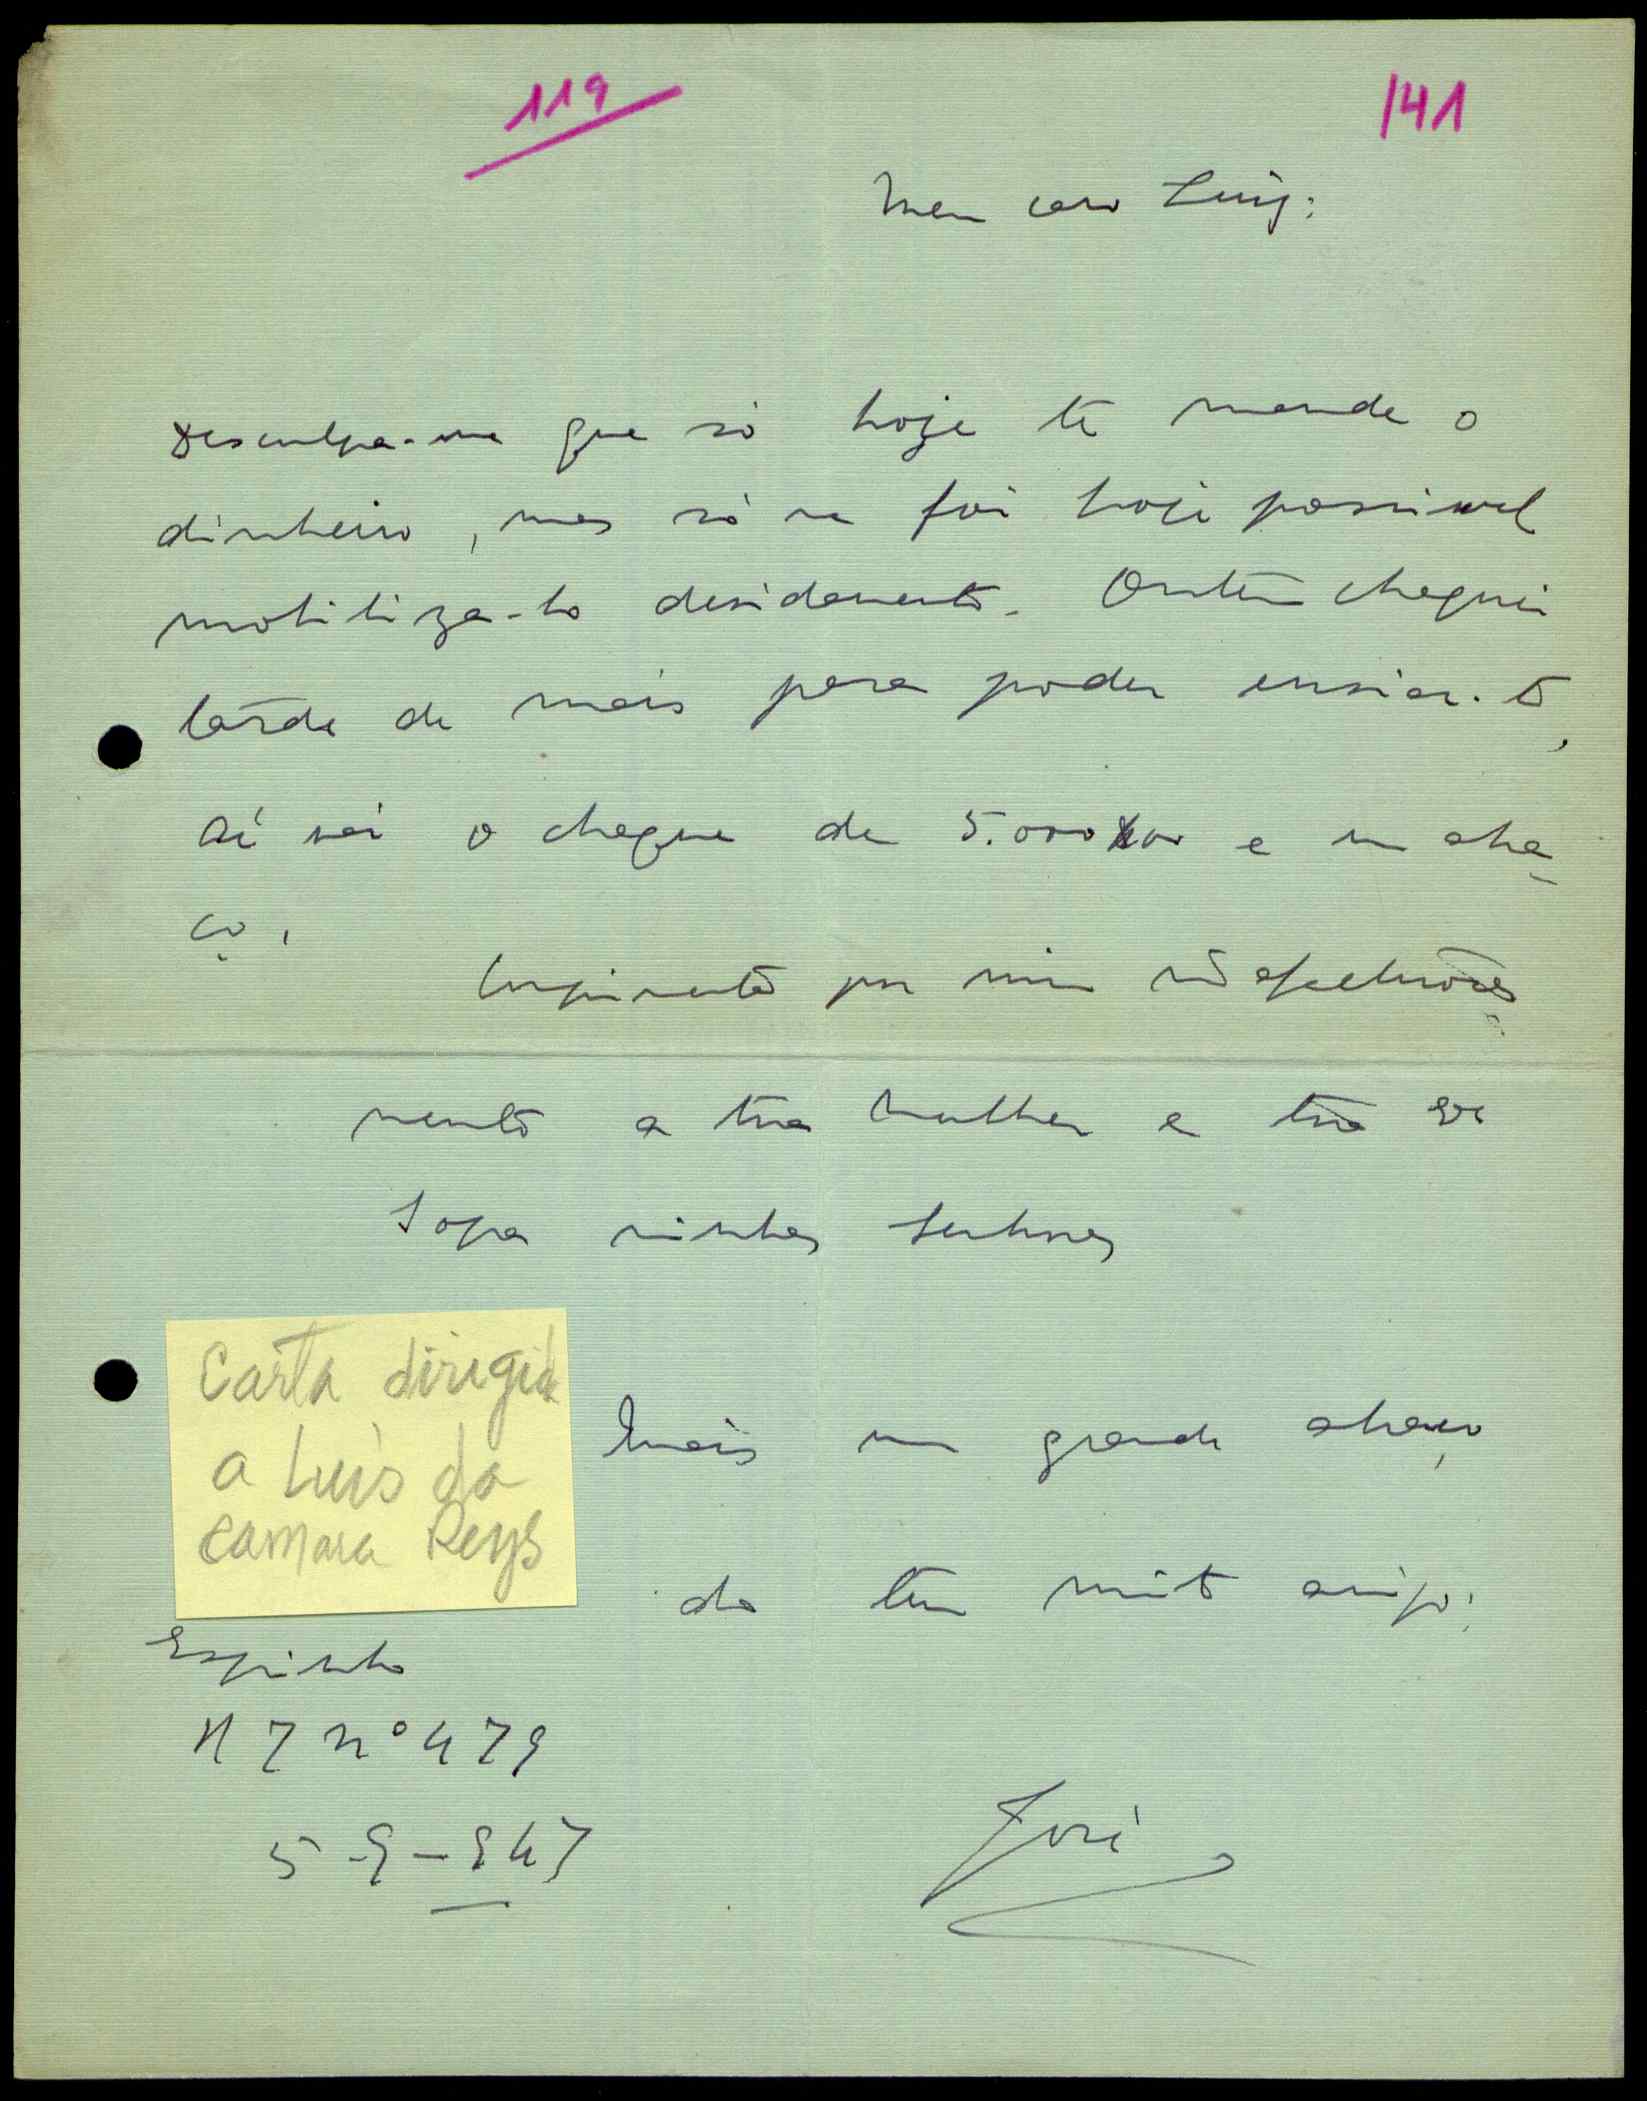 119
141
Meu caro Luiz:
Desculpa-me que só hoje te mande o
dinheiro, mas só me foi hoje possivel
mobiliza-lo devidamente. Ontem cheguei
tarde de mais para poder enviar-to,
Aí vai o cheque de 5.000$00 e um abra-
ço,
Cumprimenta por mim
mente a tua mulher e tua Exª
Sogra minhas Senhoras
Mais um grande abraço
do teu muito amigo:
José
Carta dirigida
a Luís da
Camara Reys
Espinho
R 7 nº 479
5-9-947